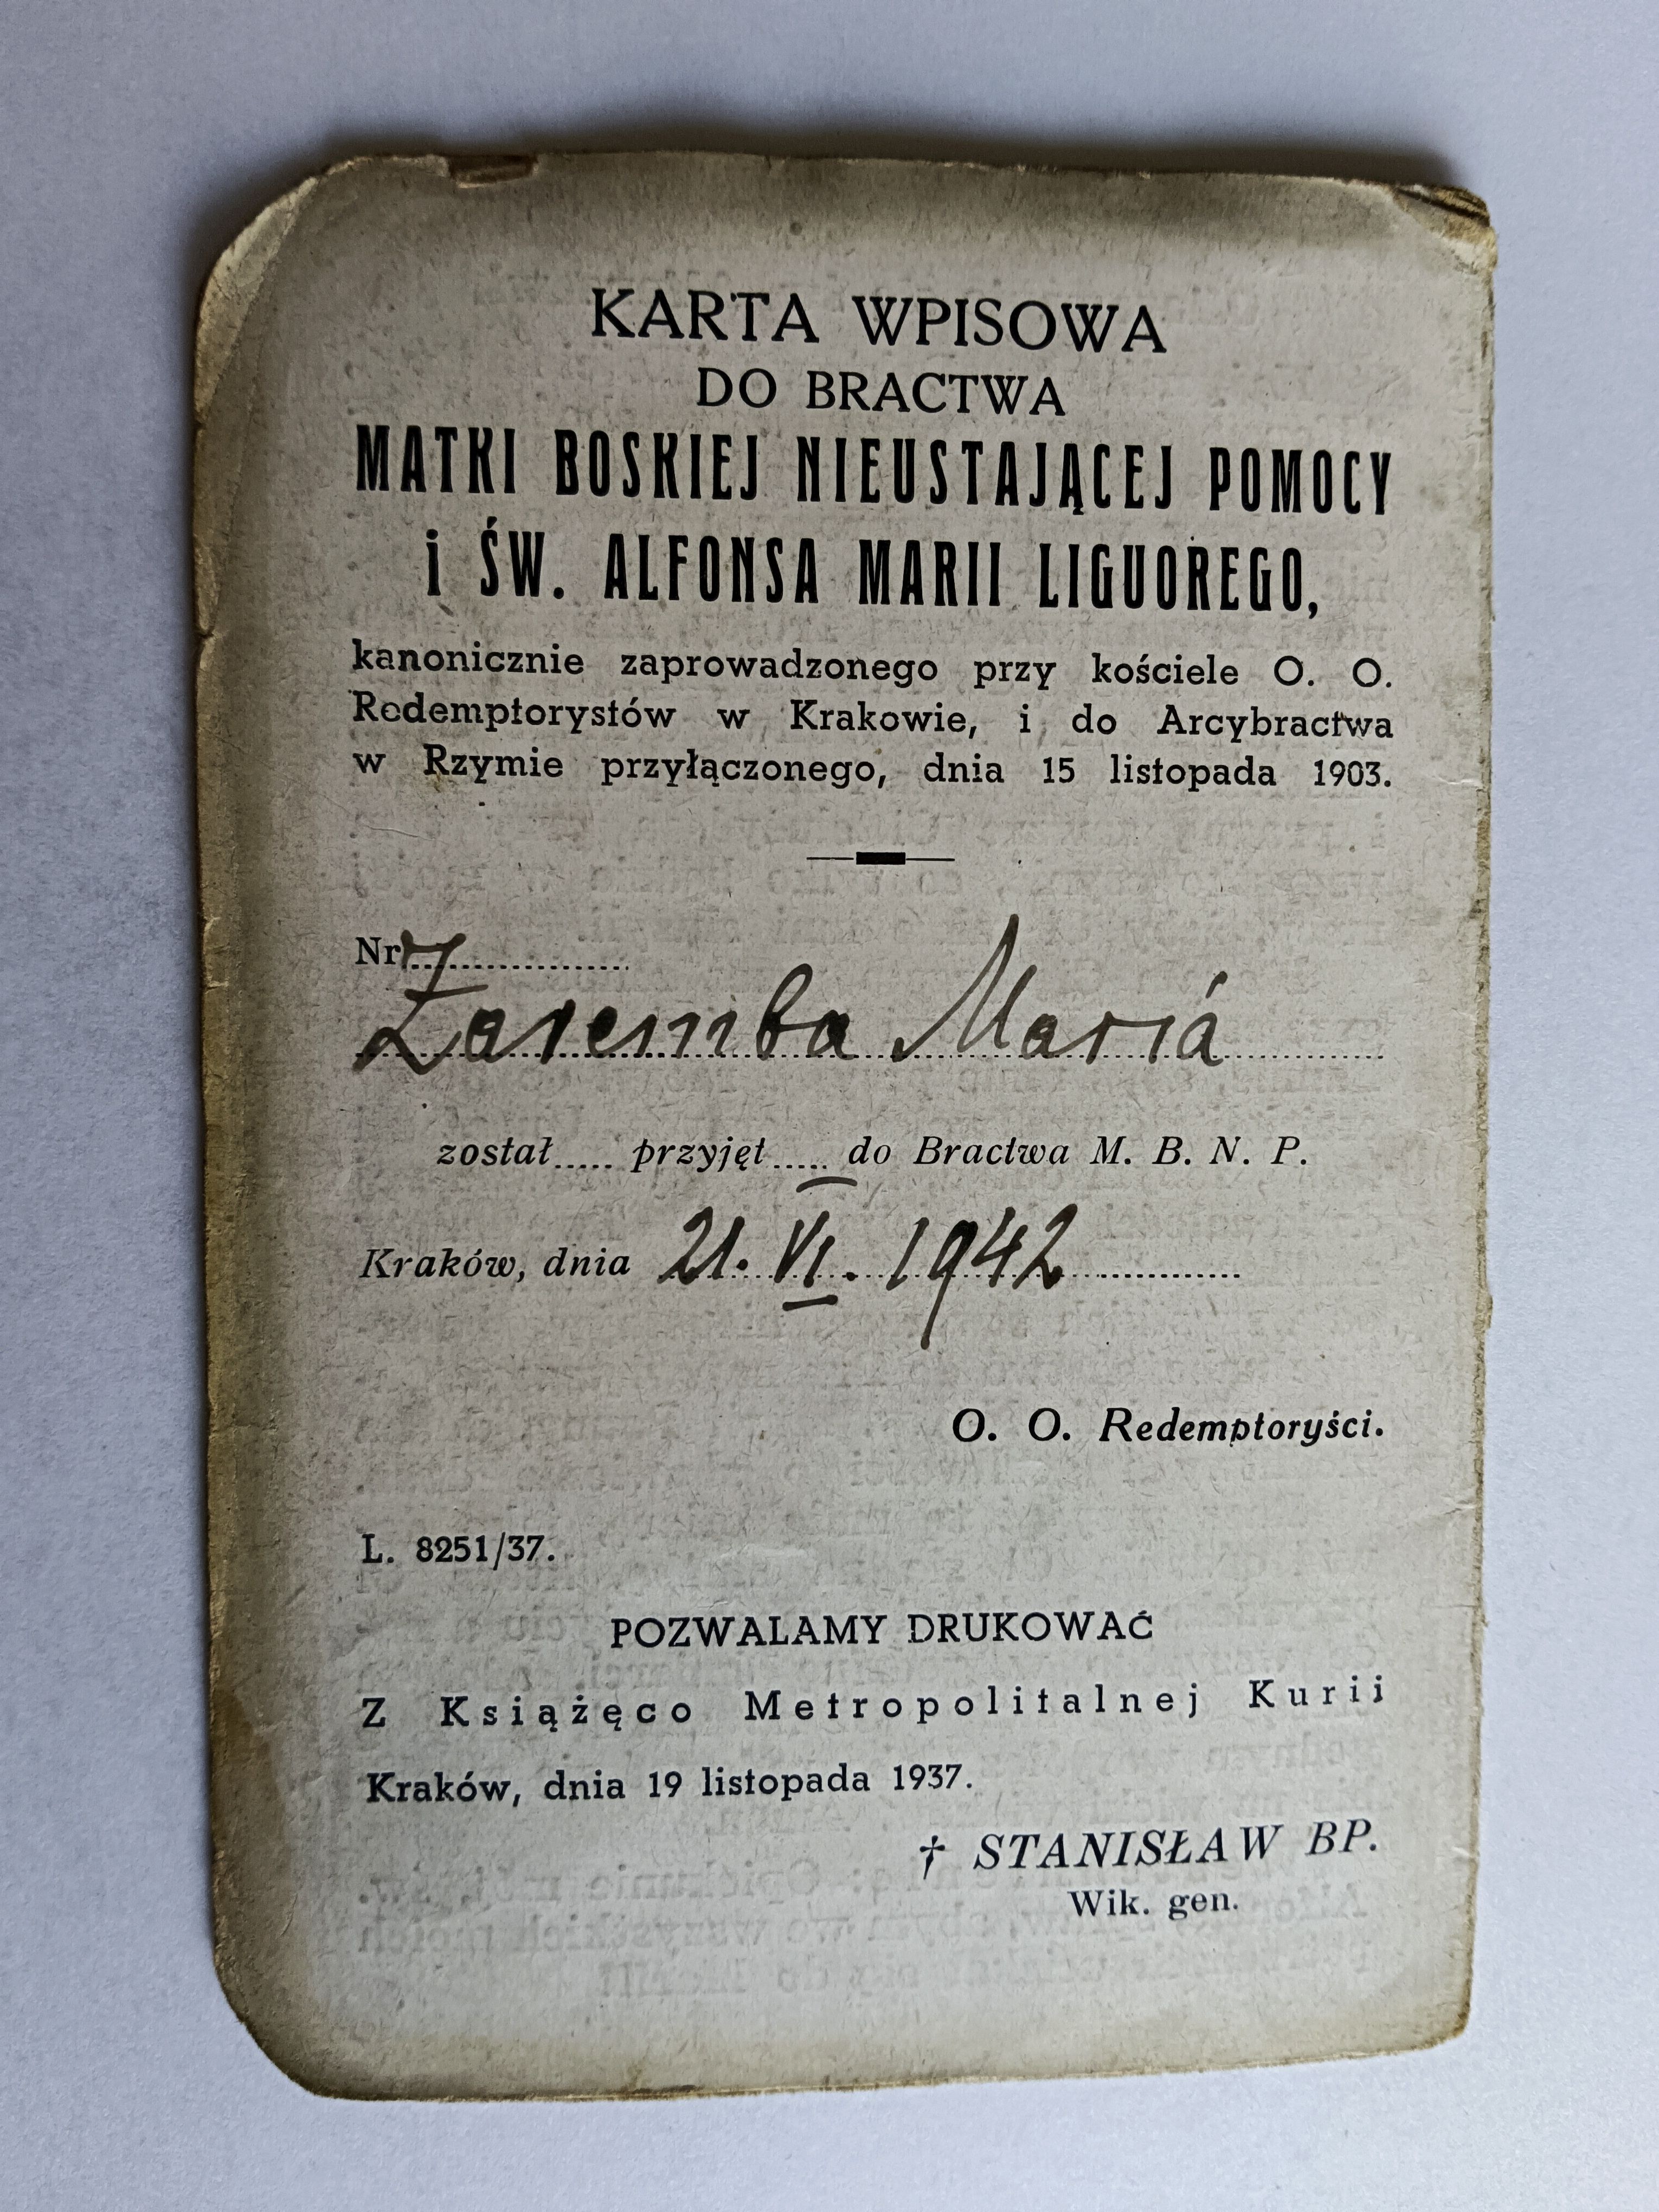 KARTA WPISOWA
DO BRACTWA
MATKI BOSKIEJ NIEUSTAJĄCEJ POMOCY
i ŚW. ALFONSA MARII LIGUOREGO,
kanonicznie zaprowadzonego przy kościele O. O.
Redemptorystów w Krakowie, i do Arcybractwa
w Rzymie przyłączonego, dnia 15 listopada 1903.
Nr..................
Zaremba Maria
został..... przyjęt..... do Bractwa M. B. N. P.
Kraków, dnia 21. VI. 1942
O. O. Redemptoryści.
L. 8251/37.
POZWALAMY DRUKOWAĆ
Z Książęco Metropolitalnej Kurii
Kraków, dnia 19 listopada 1937.
† STANISŁAW BP.
Wik. gen.